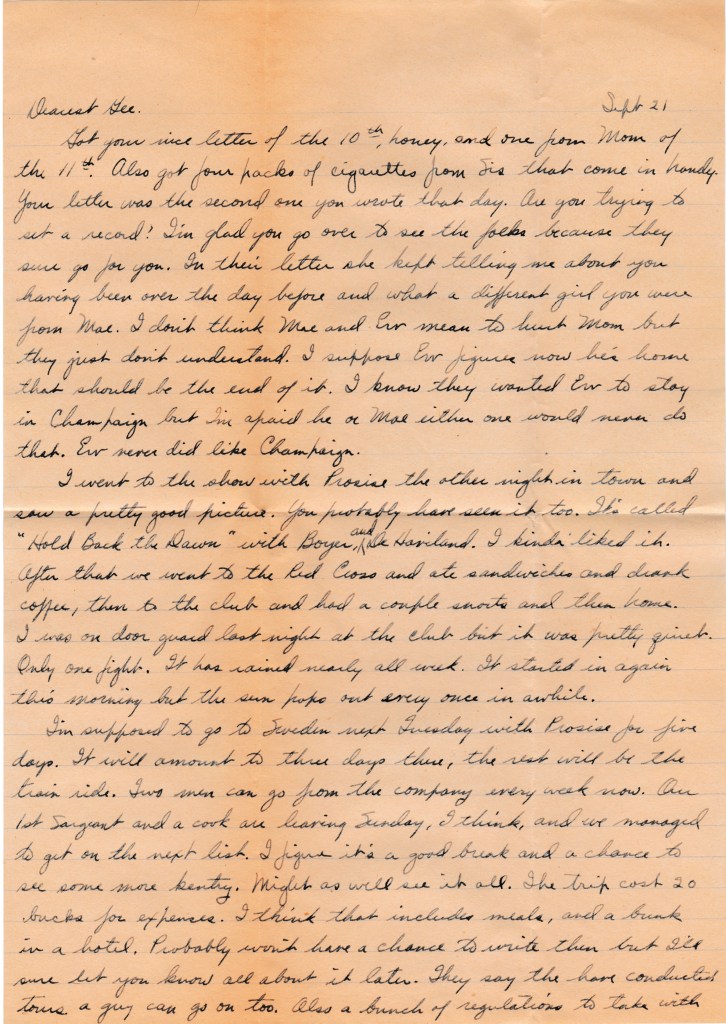 Dearest Gee. Sept 21
Got your nice letter of the 10th, honey, and one from Mom of
the 11th. Also got four packs of cigarettes from Sis that come in handy.
Your letter was the second one you wrote that day. Are you trying to
set a record? I'm glad you go over to see the folks because they
sure go for you. In their letter she kept telling me about you
having been over the day before and what a different girl you were
from Mae. I don't think Mae and Erv mean to hurt Mom but
they just don't understand. I suppose Erv figures now he's home
that should be the end of it. I know they wanted Erv to stay
in Champaign but I'm afraid he or Mae either one would never do
that. Erv never did like Champaign.
I went to the show with Prosise the other night in town and
saw a pretty good picture. You probably have seen it too. It's called
"Hold Back the Dawn" with Boyer and De Haviland. I kinda liked it.
After that we went to the Red Cross and ate sandwiches and drank
coffee, then to the club and had a couple snorts and then home.
I was on door guard last night at the club but it was pretty quiet.
Only one fight. It has rained nearly all week. It started in again
this morning but the sun pops out every once in awhile.
I'm supposed to go to Sweden next Tuesday with Prosise for five
days. It will amount to three days there, the rest will be the
train ride. Two men can go from the company every week now. Our
1st Sargeant and a cook are leaving Sunday, I think, and we managed
to get on the next list. I figure it's a good break and a chance to
see some more kentry. Might as well see it all. The trip cost 20
bucks for expenses. I think that includes meals, and a bunk
in a hotel. Probably won't have a chance to write then but I'll
sure let you know all about it later. They say the have conducted
tours a guy can go on too. Also a bunch of regulations to take with